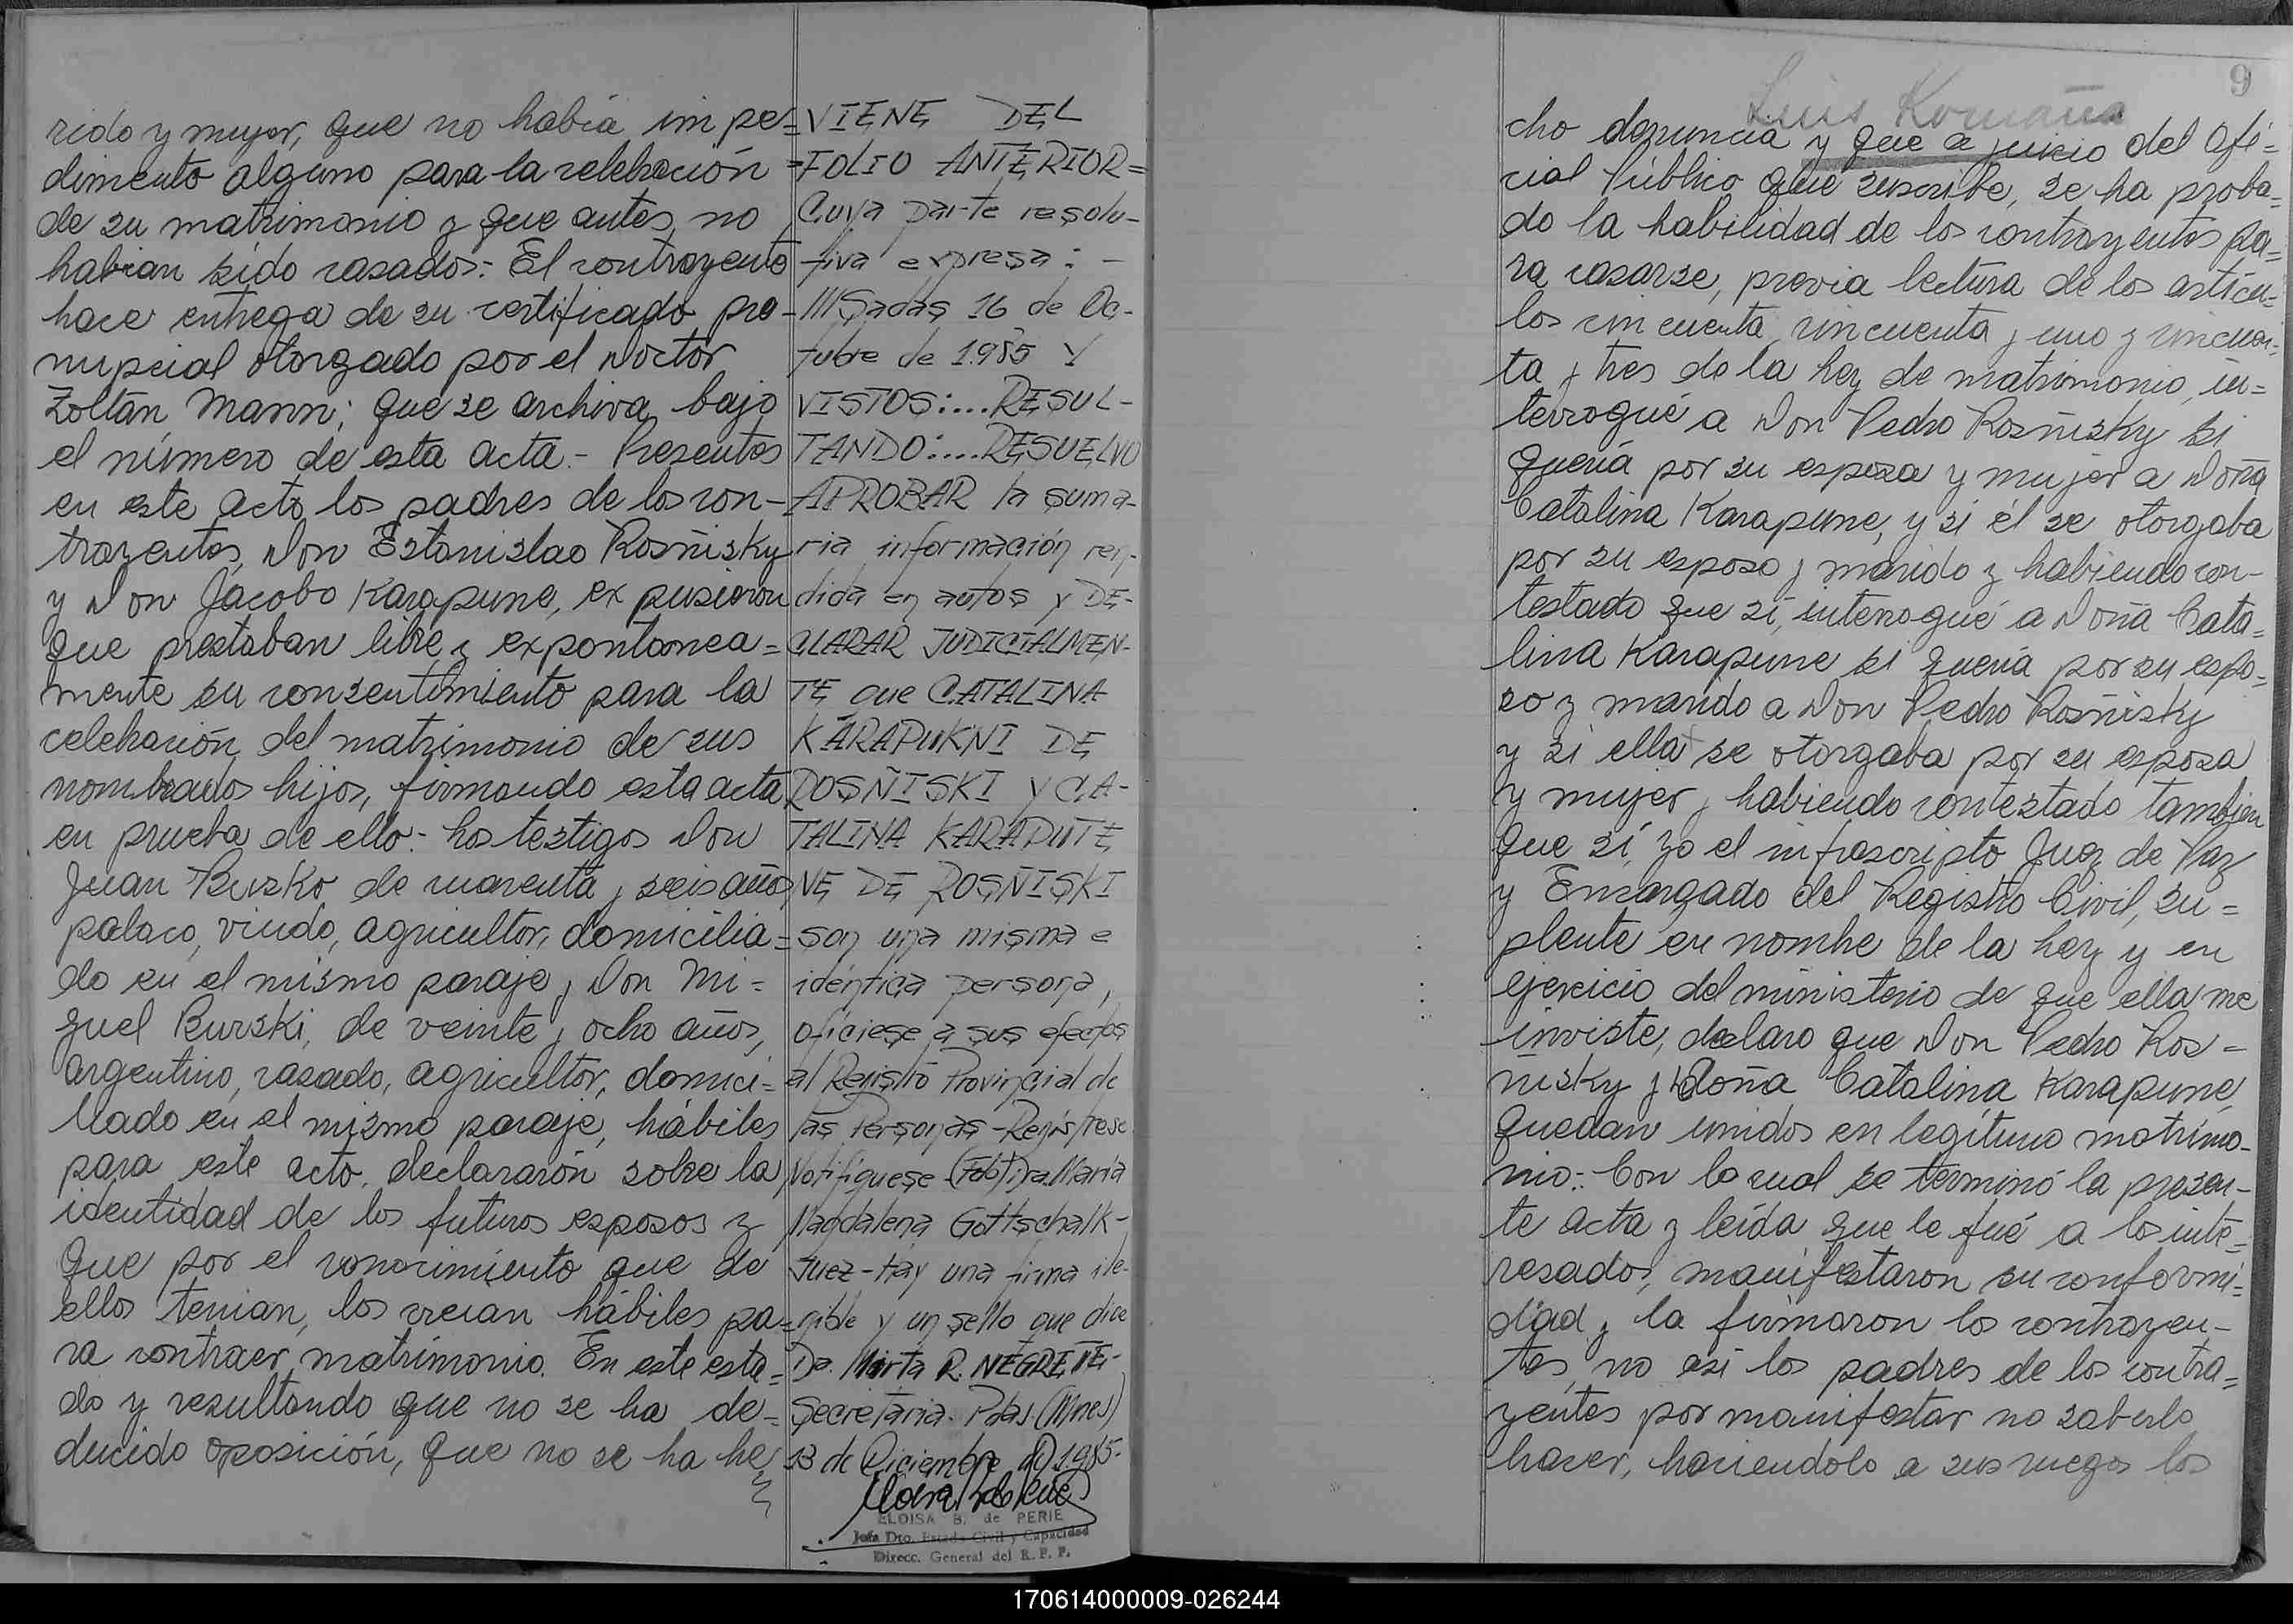 rido y mujer, que no había impe=
dimento alguno para la celebración
de su matrimonio y que antes no
habian sido casados:- El contrayente
hace entrega de su certificado pre-
nupcial otorgado por el Doctor
Zoltán Mann; que se archiva bajo
el número de esta acta.- Presentes
en este acto los padres de los con-
trayentes, Don Estanislao Rosñisky
y Don Jacobo Karapune, expusieron
que prestaban libre y expontanea=
mente su consentimiento para la
celebración del matrimonio de sus
nombrados hijos, firmando esta acta
en prueba de ello:- Los testigos Don
Juan Buzko de cuarenta y seis años
polaco, viudo, agricultor, domicilia=
do en el mismo paraje y Don Mi=
guel Burski, de veinte y ocho años,
argentino, casado, agricultor, domici=
liado en el mismo paraje, hábiles
para este acto, declararón sobre la
identidad de los futuros esposos y
que por el conocimiento que de
ellos tenian, los creian hábiles pa=
ra contraer matrimonio. En este esta=
do y resultando que no se ha de=
ducido oposición, que no se ha he
=VIENE DEL
=FOLIO ANTERIOR=
Cuya parte resolu-
tiva expresa: -
///Sadas 16 de Oc-
tubre de 1.985 Y
VISTOS:....RESUL-
TANDO:....RESUELVO
APROBAR la suma-
ria información ren-
dida en autos y DE-
CLARAR JUDICIALMEN-
TE que CATALINA
KARAPUKNI DE
ROSÑISKI Y CA-
TALINA KARAPUTE
NE DE ROSÑISKI
son una misma e
idéntica persona,
ofíciese a sus efectos
al Registro Provincial de
las Personas-Regístrese
Notifíquese (Fdo) Dra. María
Magdalena Gottschalk-
Juez-Hay una firma ile-
gible y un sello que dice
Da. Mirta R. NEGRETE-
Secretaria. Pdas. (Mnes)
13 de Diciembre de 1.985-
ELOISA B. de PERIE
Jefa Dto. Estado Civil y Capacidad
Direcc. General del R. P. P.
9
Luis Romaña
cho denuncia y que a juicio del Ofi=
cial Público que suscribe, se ha proba=
do la habilidad de los contrayentes pa=
ra casarse, previa lectura de los artícu=
los cincuenta, cincuenta y uno y cincuen=
ta y tres de la Ley de matrimonio, in=
terrogué a Don Pedro Rosñisky si
quería por su esposa y mujer a Doña
Catalina Karapune, y si él se otorgaba
por su esposo y marido y habiendo con-
testado que sí, interrogué a Doña Cata=
lina Karapune si quería por su espo=
so y marido a Don Pedro Rosñisky
y si ella se otorgaba por su esposa
y mujer y habiendo contestado tambien
que sí, yo el infrascripto Juez de Paz
y Encargado del Registro Civil, su=
plente en nombre de la Ley y en
ejercicio del ministerio de que ella me
inviste, declaro que Don Pedro Ros=
ñisky y Doña Catalina Karapune,
quedan unidos en legítimo matrimo-
nio:- Con lo cual se terminó la presen-
te acta y leída que le fué a los inte=
resados, manifestaron su conformi=
dad y la firmaron los contrayen-
tes, no asi los padres de los contra=
yentes por manifestar no saberlo
hacer, haciendolo a sus ruegos los
170614000009-026244